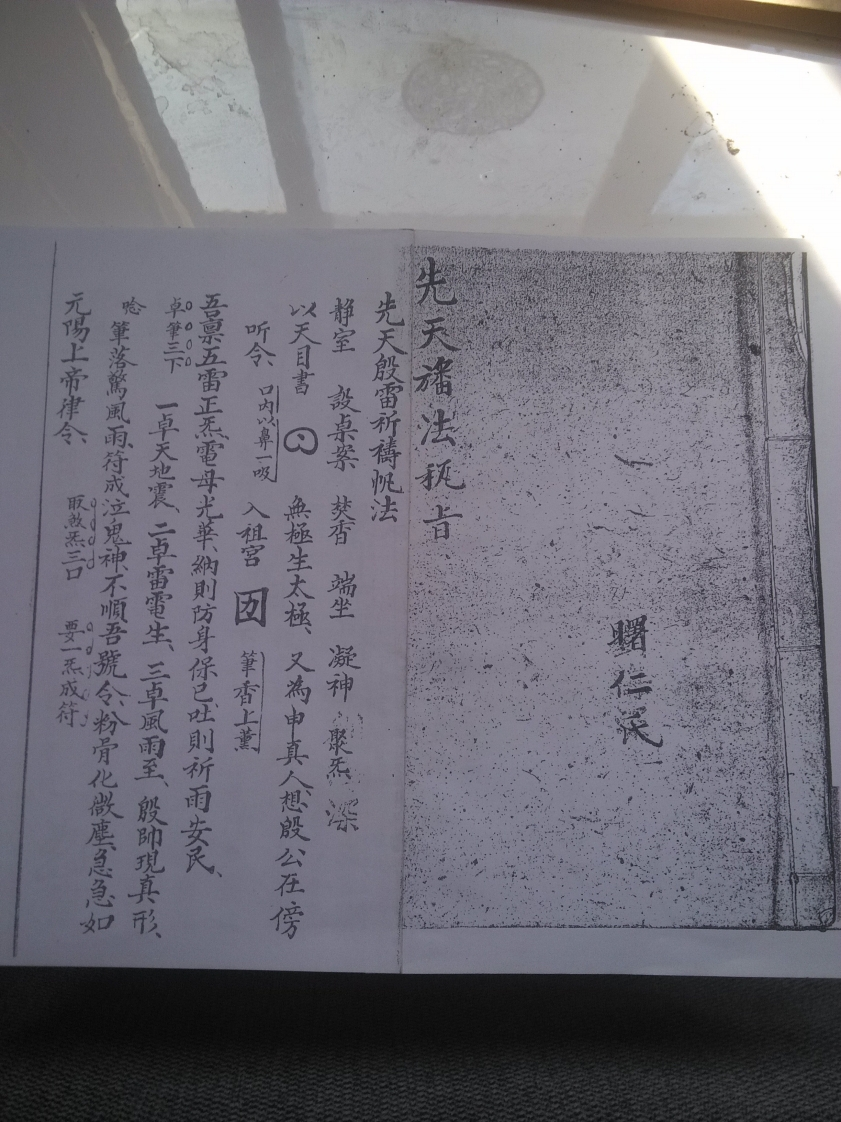 先天旛法秘旨
曙仁氏
先天殷雷祈禱帆法
静室 設桌案 焚香 端坐 凝神 聚炁 深
以天目書 無極生太極、又為申真人想殷公在傍
听令、口内以鼻一吸 入祖宮 筆香上薰
吾禀五雷正炁、電母光華、納則防身保己、吐則祈雨安民、
卓筆三下 一卓天地震、二卓雷電生、三卓風雨至、殷帥現真形、
唸 筆落驚風雨、符成泣鬼神、不順吾號令、粉骨化微塵、急急如
元陽上帝律令、 取煞炁三口 要一炁成符